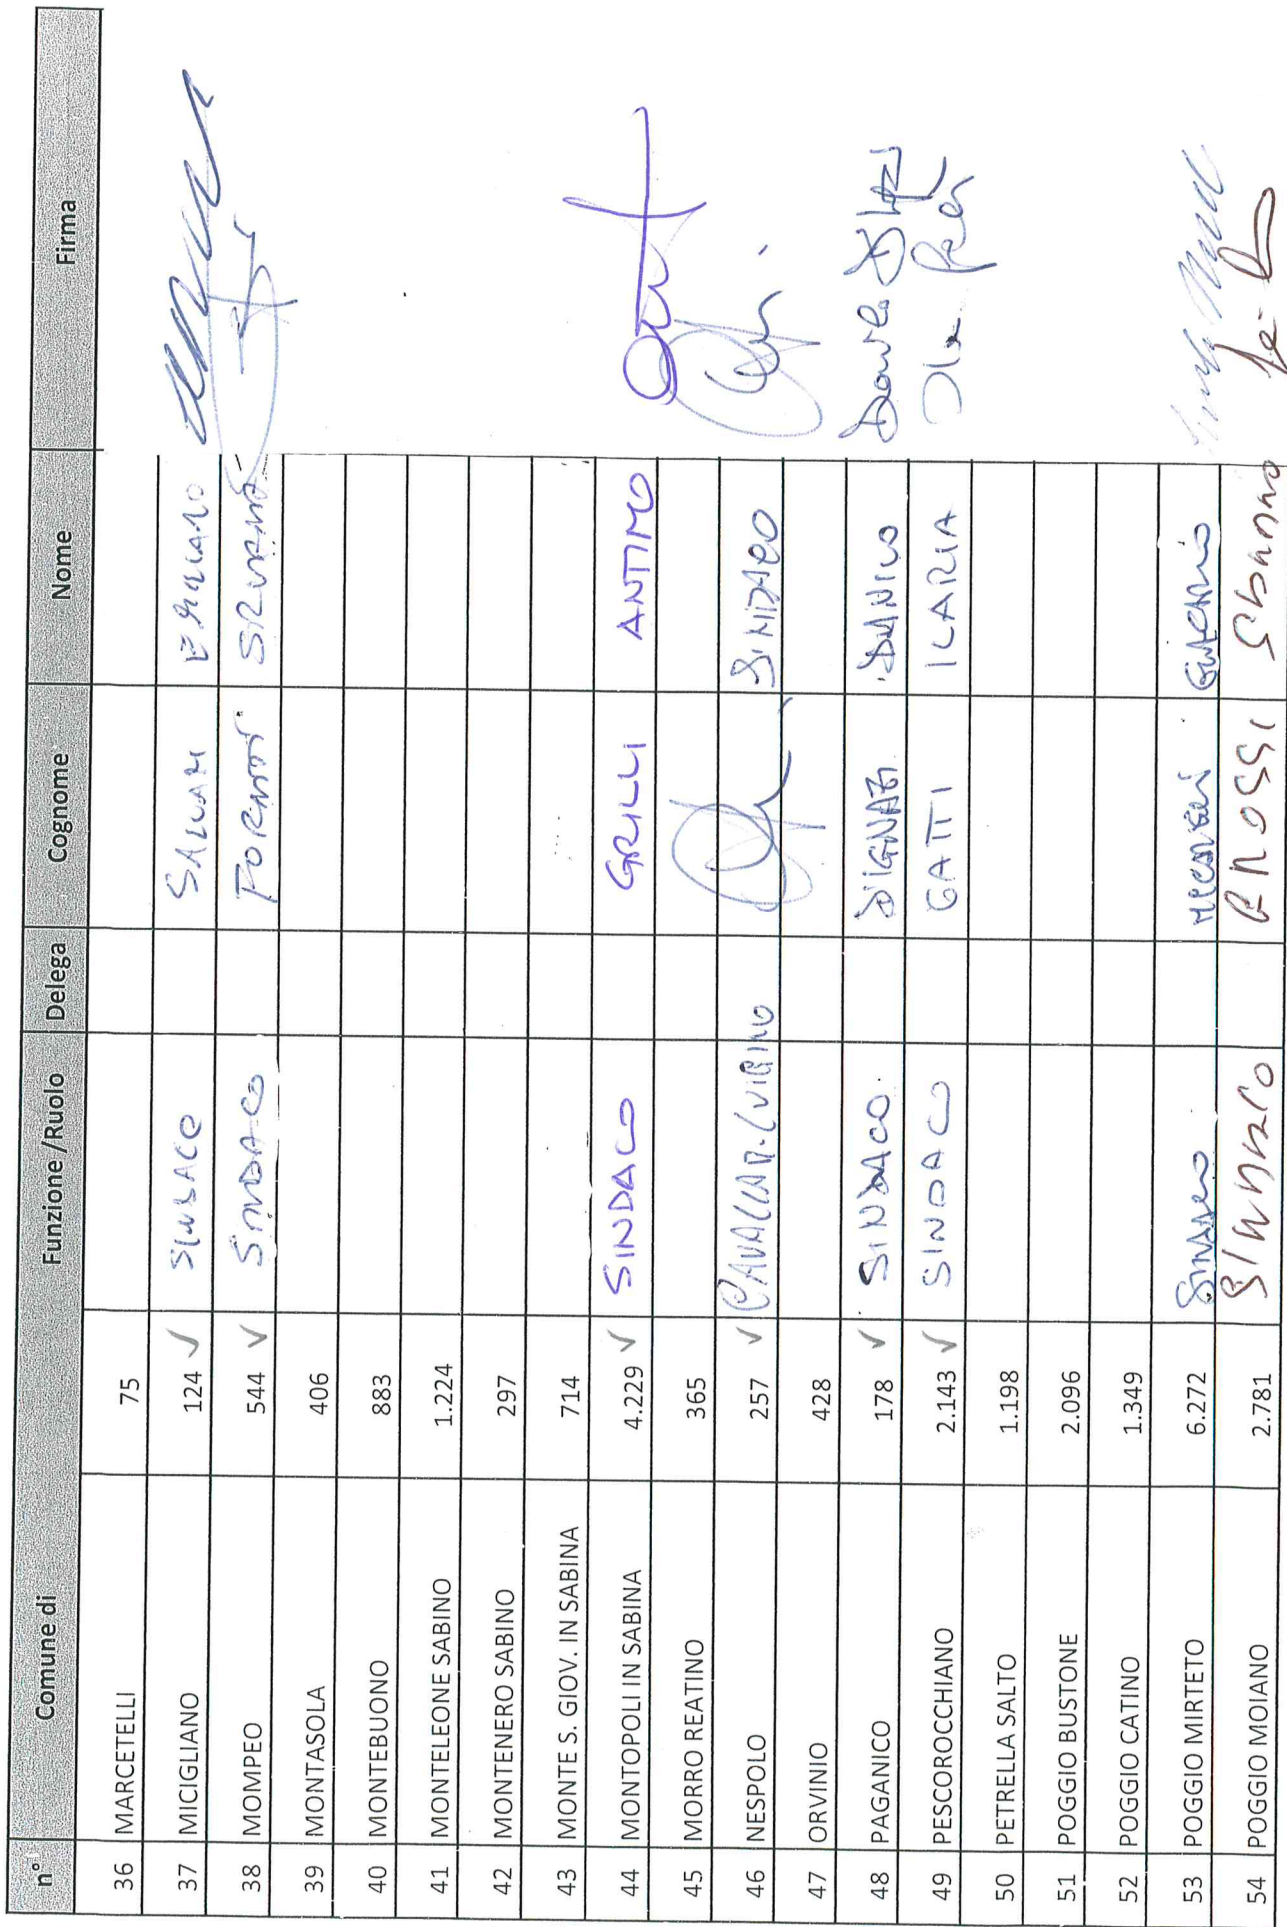 n° Comune di Funzione /Ruolo Delega Cognome Nome Firma
36 MARCETELLI 75
37 MICIGLIANO 124 ✓ SINDACO SALVATI EMILIANO
38 MOMPEO 544 ✓ SINDACO FORNITI SILVANA
39 MONTASOLA 406
40 MONTEBUONO 883
41 MONTELEONE SABINO 1.224
42 MONTENERO SABINO 297
43 MONTE S. GIOV. IN SABINA 714
44 MONTOPOLI IN SABINA 4.229 ✓ SINDACO GRILLI ANTIMO
45 MORRO REATINO 365
46 NESPOLO 257 ✓ CAVALLARI LUIGINO SINDACO
47 ORVINIO 428
48 PAGANICO 178 ✓ SINDACO D'IGNAZI DANILO
49 PESCOROCCHIANO 2.143 ✓ SINDACO GATTI ILARIA
50 PETRELLA SALTO 1.198
51 POGGIO BUSTONE 2.096
52 POGGIO CATINO 1.349
53 POGGIO MIRTETO 6.272 SINDACO
54 POGGIO MOIANO 2.781 SINDACO